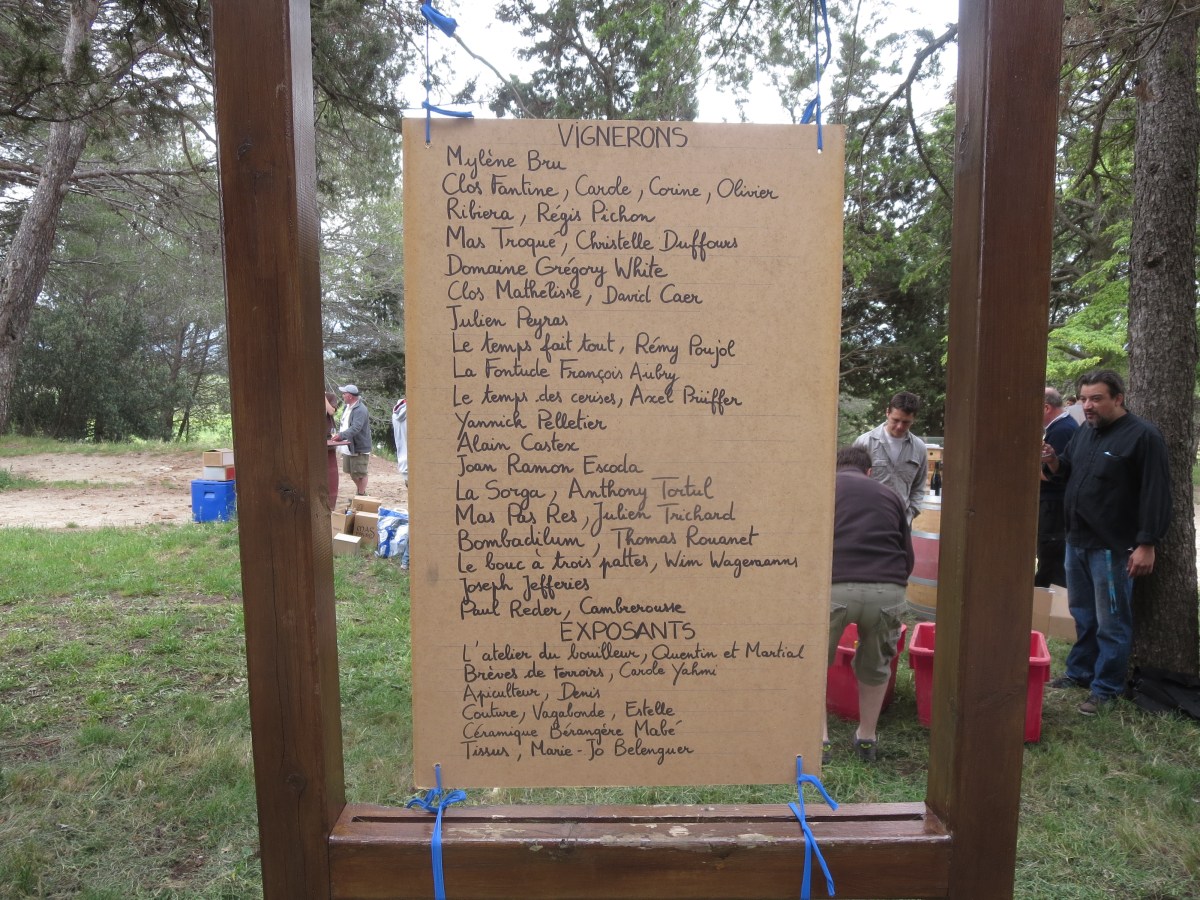 VIGNERONS
Mylène Bru
Clos Fantine, Carole, Corine, Olivier
Ribiera, Régis Pichon
Mas Troqué, Christelle Duffours
Domaine Grégory White
Clos Mathelisse, David Caer
Julien Peyras
Le temps fait tout, Rémy Poujol
La Fontude François Aubry
Le temps des cerises, Axel Prüffer
Yannick Pelletier
Alain Castex
Joan Ramon Escoda
La Sorga, Anthony Tortul
Mas Pas Res, Julien Trichard
Bombadilum, Thomas Rouanet
Le bouc à trois pattes, Wim Wagemanns
Joseph Jefferies
Paul Reder, Cambrerousse
ÉXPOSANTS
L'atelier du bouilleur, Quentin et Martial
Brèves de terroirs, Carole Yahmi
Apiculteur, Denis
Couture, Vagabonde, Estelle
Céramique Bérangère Mabé
Tissus, Marie-Jo Belenguer